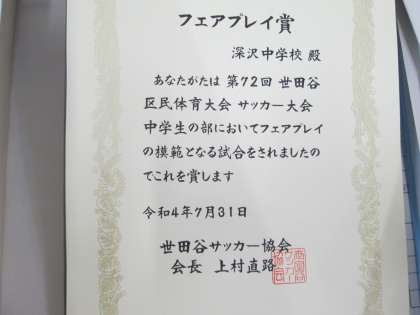 フェアプレイ賞
深沢中学校 殿
あなたがたは 第72回 世田谷
区民体育大会 サッカー大会
中学生の部においてフェアプレイ
の模範となる試合をされましたの
でこれを賞します
令和4年7月31日
世田谷サッカー協会
会長 上村直路